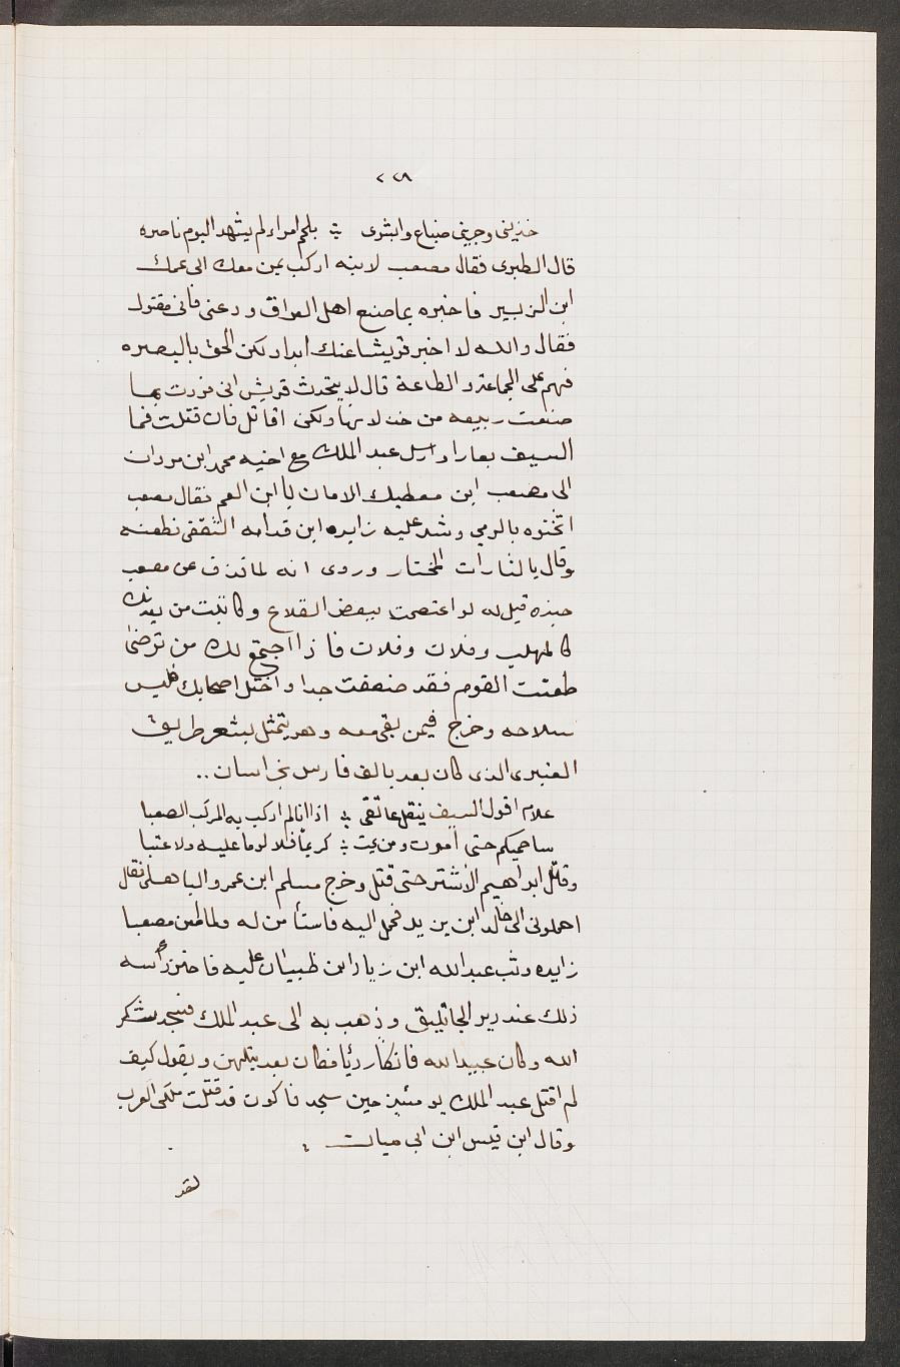 خذيني وجريني ضباع وابشرى ؞ بلحم امراء لم يشهد اليوم ناصره
قال الطبرى فقال مصعب لابنه اركب بمن معك الى عمك
ابن الزبير فاخبره بما صنع اهل العراق ودعنى فانى مقتول
فقال والله لا اخبر قريشا عنك ابدا ولكن الحق بالبصره
فهم على الجماعة والطاعة قال لا يتحدث قريش انى فررت بما
صنعت ربيعه من خذلانها ولكن اقاتل فان قتلت فما
السيف بعار وارسل عبد الملك مع اخيه محمد ابن مروان
الى مصعب ابن معطيك الامان يا ابن العم فقال مصعب
اثخنوه بالرمي وشد عليه زايده ابن قدامه الثقفى نطعنه
وقال يا لثارات المختار وروى انه لما تفرق عن مصعب
جنده قيل له لو اعتصمت ببعض القلاع وكاتبت من بعد عنك
كالمهلب وفلان وفلان فاذا اجتمع لك من ترضى
القوم فقد ضعفت جدا واختل اصحابك فلبس
سلاحه وخرج فيمن بقى معه وهو يتمثل بشعر طريف
العنبرى الذى كان يعد بالف فارس بخراسان ..
علام اقول السيف يثقل عاتقى ؞ اذا انا لم اركب به المركب الصعبا
ساحميكم حتى اموت ومن يمت ؞ كريما فلا لوما عليه ولا عتبا
وقاتل ابراهيم الاشتر حتى قتل وخرج مسلم ابن عمرو الباهلى فقال
احملونى الى خالد ابن يزيد فحمل اليه فاستأمن له ولما طعن مصعبا
زايده وثب عبد الله ابن زياد ابن ظبيان عليه فاحتز رأسه
ذلك عند دير الجاثليق وذهب به الى عبد الملك فسجد شكر
الله وكان عبيد الله فاتكا رديا فكان بعد يتلهن ويقول كيف
لم اقتل عبد الملك يومئيذ حين سجد فاكون قد قتلت ملكى العرب
وقال ابن قيس ابن ابى
لقد